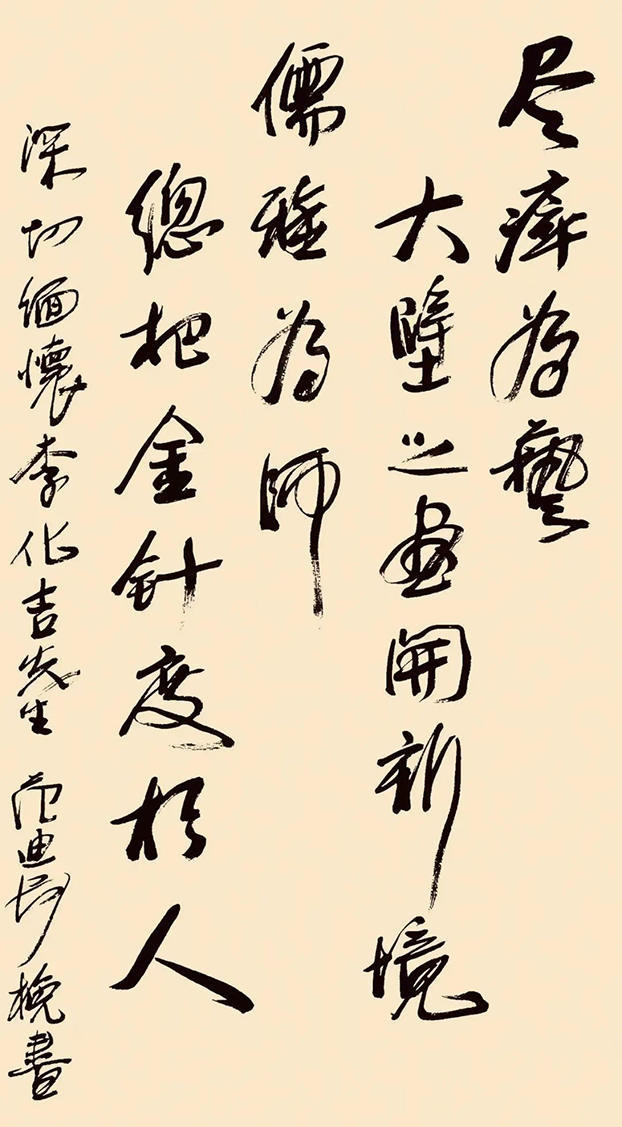 尽瘁為藝
大壁之畫開新境
儒雅為師
總把金針度於人
深切緬懷李化吉先生 范迪安挽書